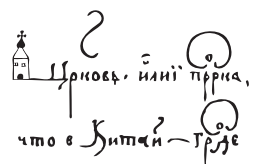 Црковь. илиї пррка,
что в Китай – Грде